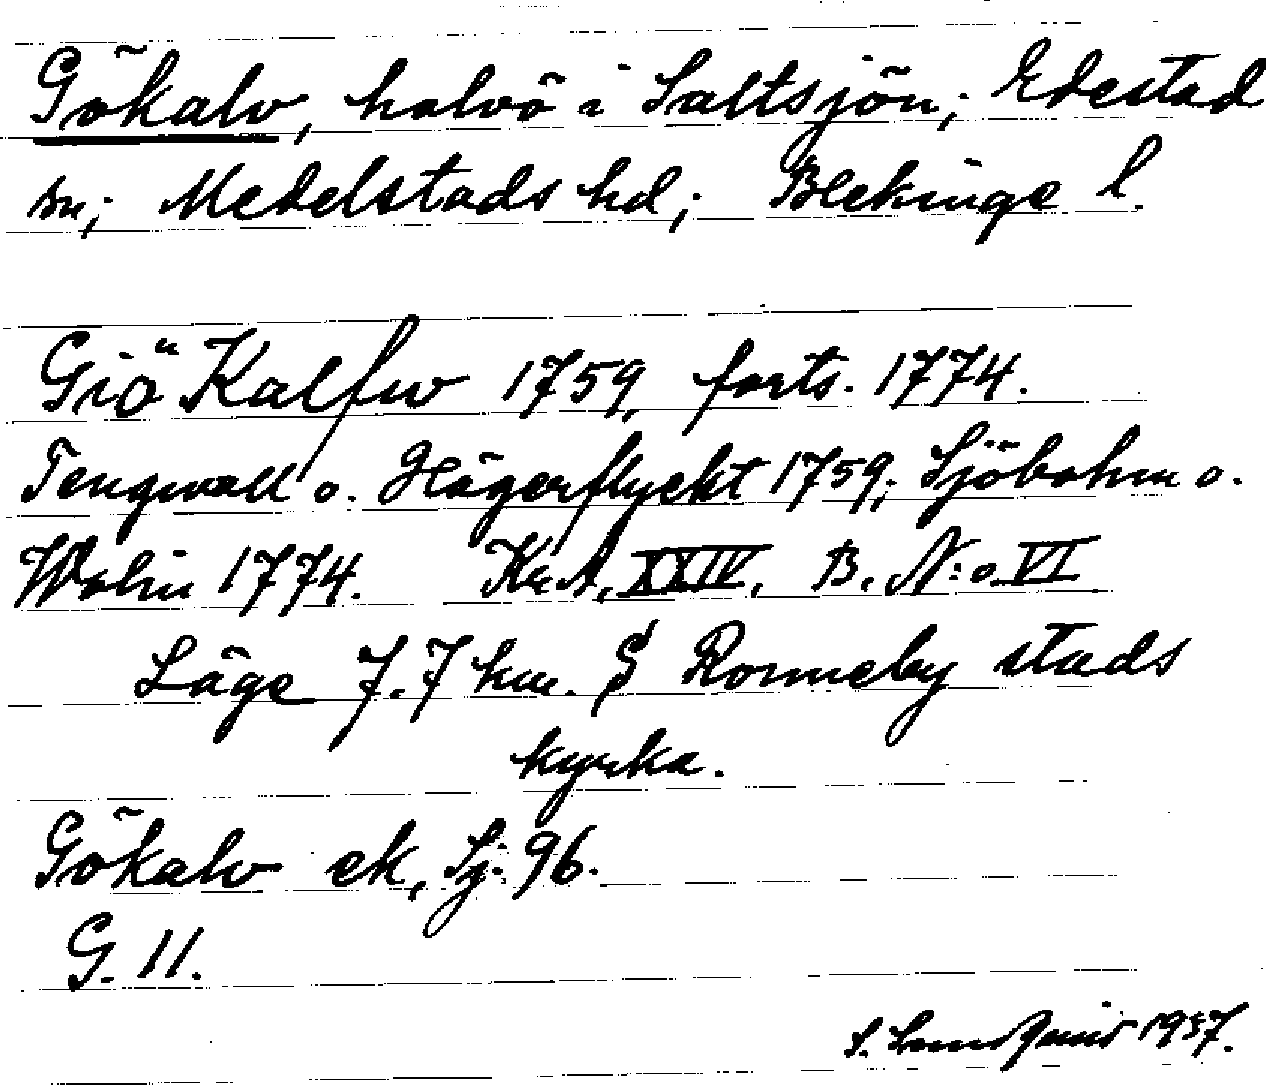 Gökalv, halvö i Saltsjön; Edestad
sn; Medelstads hd; Blekinge l.
Giö Kalfw 1759, forts. 1774.
Tengwall o. Hägerflyckt 1759; Sjöbohm o.
Wohn 1774. Kr.A. XXIV, B. N:o VI
Läge 7.7 km. S Ronneby stads
kyrka.
Gökalv ek, Sj. 96.
G. 11.
S. 1937.